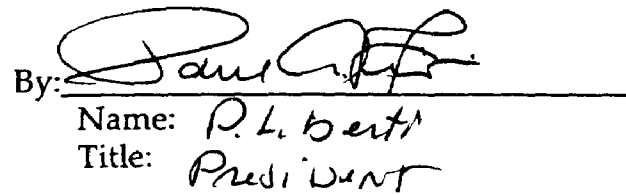 By:
Name: P. L. Berti
Title: President